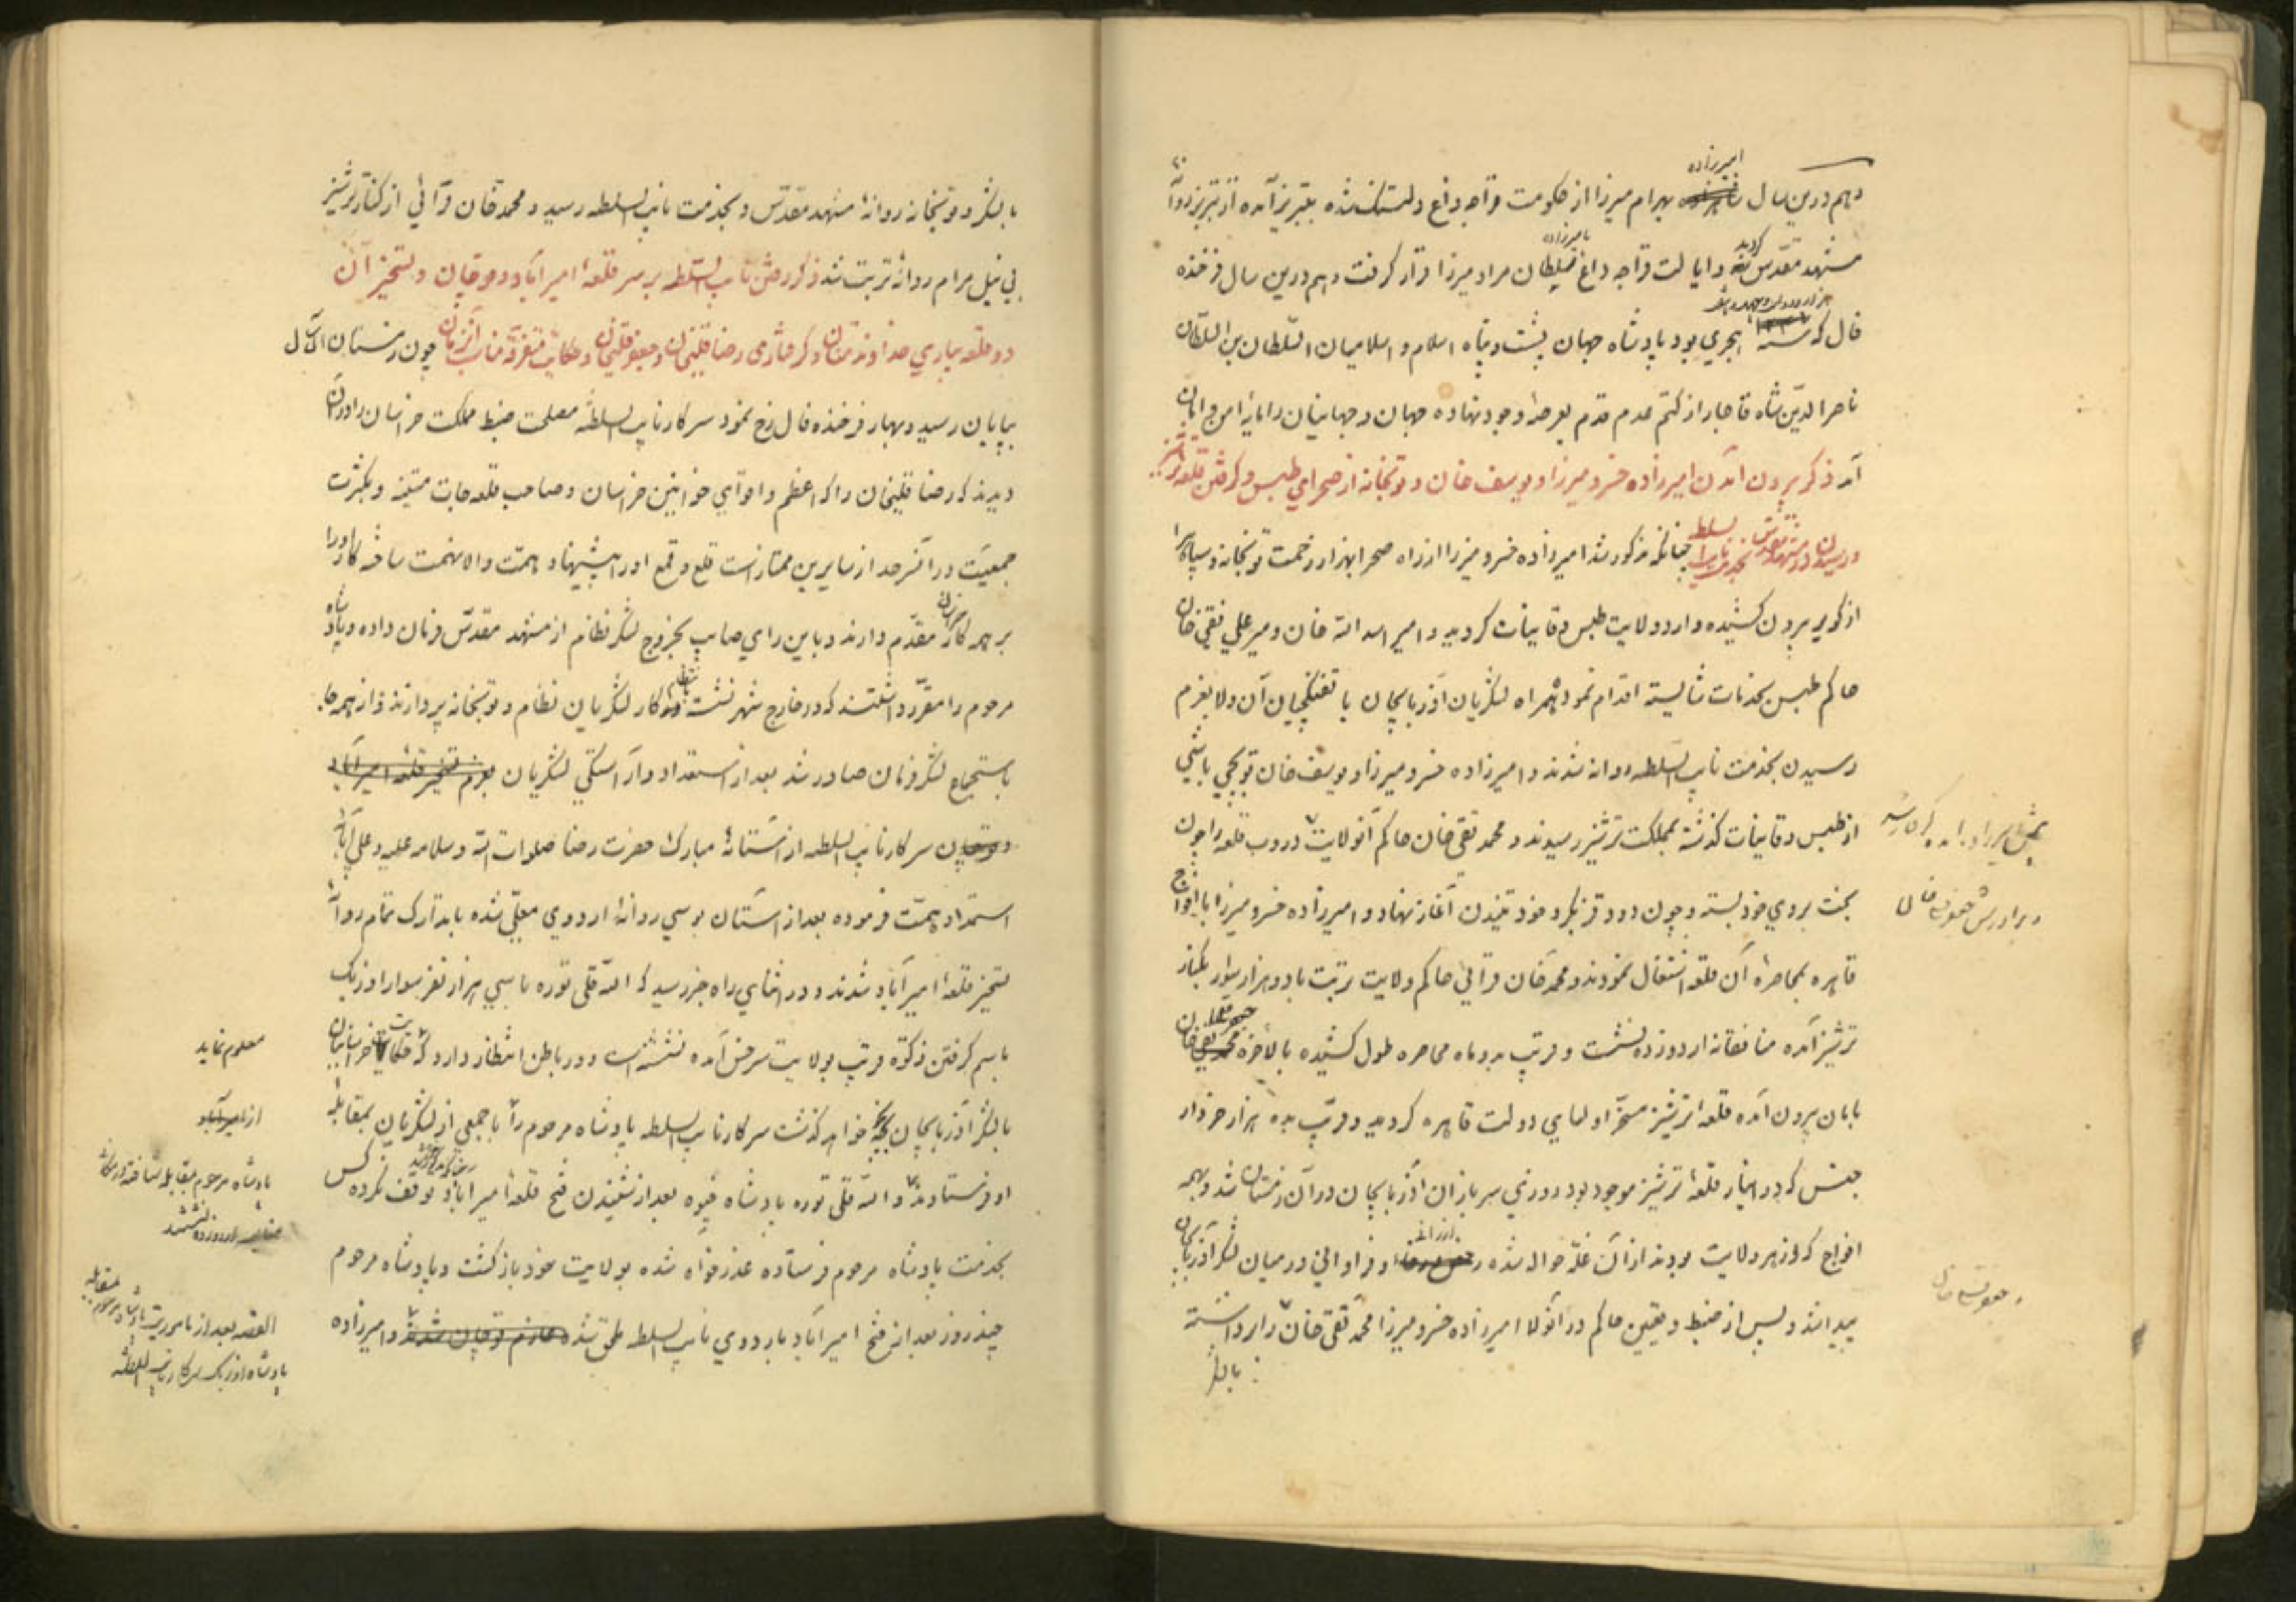 امیرزاده
وهم درین سال بهرام میرزا از حکومت قراجه داغ دلتنک شده بتبریز آمده از تبریز روانهٔ
مشهد مقدس کردید و ایالت قراجه داغ بامیرزاده سلطان مراد میرزا قرار کرفت وهم درین سال فرخنده
فال که سنه هجری بود پادشاه جهان پشت و پناه اسلام و اسلامیان السّلطان بن السّلطان
ناصر الدّین شاه قاجار از کتم عدم قدم بعرصهٔ وجود نهاده جهان و جهانیان را مایهٔ امن و امان
آمد ذکر بیرون آمدن امیرزاده خسرو میرزا و یوسف خان و توپخانه از صحرای طبس و کرفتن قلعهٔ ترشیز
و رسیدن در مشهد مقدس بخدمت نایب السلطنه چنانکه مذکور شد امیرزاده خسرو میرزا از راه صحرا بهزار زحمت توپخانه و سپاه را
از کویر بیرون کشیده وارد ولایت طبس و قاینات کردید و امیر اسد الله خان و میر علی نقی خان
حاکم طبس بخدمات شایسته اقدام نمود همراه لشکریان آذربایجان با تفنکچیان آن ولا بعزم
رسیدن بخدمت نایب السّلطنه روانه شدند و امیرزاده خسرو میرزا و یوسف خان توپچی باشی
از طبس و قاینات کذشته بمملکت ترشیز رسیدند و محمد تقی خان حاکم آنولایت در وب قلعه را چون
بخت بروی خود بسته و چون دود قز بکرد خود تنیدن آغاز نهاد و امیرزاده خسرو میرزا با افواج
و برادرش جعفر قلی خان
قاهره بمحاصرهٔ آن قلعه اشتغال نمودند و محمد خان قرائی حاکم ولایت تربت با دو هزار سوار بکنار
ترشیز آمده منافقانه اردو زده نشست و قریب بدو ماه محاصره طول کشیده بالاخره محمد تقی خان
بامان بیرون آمده قلعهٔ ترشیز مسخّر اولیای دولت قاهره کردید و قریب بده هزار خروار
جنس که در انبار قلعهٔ ترشیز موجود بود روزی سربازان آذربایجان در آن زمستان شد و بهمه
افواج که از هر ولایت بودند از آن غلّه حواله شده ارزانی و فراوانی در میان لشکر آذربایجان
پیدا شد و پس از ضبط و تعیین حاکم در آنولا امیرزاده خسرو میرزا محمد تقی خان را برداشته
و جعفر قلی خان
با لشکر
با لشکر و توپخانه روانهٔ مشهد مقدّس و بخدمت نایب السلطنه رسید و محمد خان قرائی از کنار ترشیز
بی نیل مرام روانهٔ تربت شد ذکر رفتن نایب السّلطنه بر سر قلعهٔ امیرآباد و قوچان و تسخیر آن
دو قلعه بیاری خداوند منان و کرفتاری رضا قلیخان و جعفر قلیخان و حکایت متفرّقهٔ مناسب آنزمان چون زمستان آن سال
بپایان رسید و بهار فرخنده فال رخ نمود سرکار نایب السلطنه مصلحت ضبط مملکت خراسان را در آن
دیدند که رضا قلیخان را که اعظم و اقوای خوانین خراسان و صاحب قلعه جات متینه و بکثرت
جمعیّت در آنسرحد از سایرین ممتاز است قلع و قمع او را پیشنهاد همّت والا نهمت ساخته کار او را
بر همه کار خراسان مقدّم دارند و باین رای صایب بخروج لشکر نظام از مشهد مقدّس فرمان داده و پادشاه
مرحوم را مقرّر داشتند که در خارج شهر نشسته کار لشکریان نظام و توپخانه پردازند و از همه جا
باستجماع لشکر فرمان صادر شد بعد از استعداد و آراستکی لشکریان بعزم تسخیر قلعهٔ امیرآباد
و قوچان سرکار نایب السلطنه از آستانهٔ مبارکهٔ حضرت رضا صلوات الله و سلامه علیه و علی آبائه
استمداد همّت فرموده بعد از آستان بوسی روانهٔ اردوی معلّی شده با تدارک تمام روانهٔ
تسخیر قلعهٔ امیرآباد شدند و در اثنای راه خبر رسید که الله قلی توره با سی هزار نفر سوار اوزبک
باسم کرفتن زکوة قریب بولایت سرخس آمده نشسته است و در باطن انتظار دارد که حکایت خراسانیان
با لشکر آذربایجان بکجا خواهد کذشت سرکار نایب السلطنه پادشاه مرحوم را با جمعی از لشکریان بمقابلهٔ
او فرستادند و الله قلی توره پادشاه خیوه بعد از شنیدن فتح قلعهٔ امیرآباد توقف نکرده کس
بخدمت پادشاه مرحوم فرستاده عذر خواه شده بولایت خود باز کشت و پادشاه مرحوم
چند روز بعد از فتح امیرآباد باردوی نایب السلطنه ملحق شده عازم قوچان شدند و امیرزاده
معلوم نماید
از امیرآباد
القصّه بعد از ماموریت پادشاه مرحوم بمقابله
پادشاه اوزبک سرکار نایب السلطنه